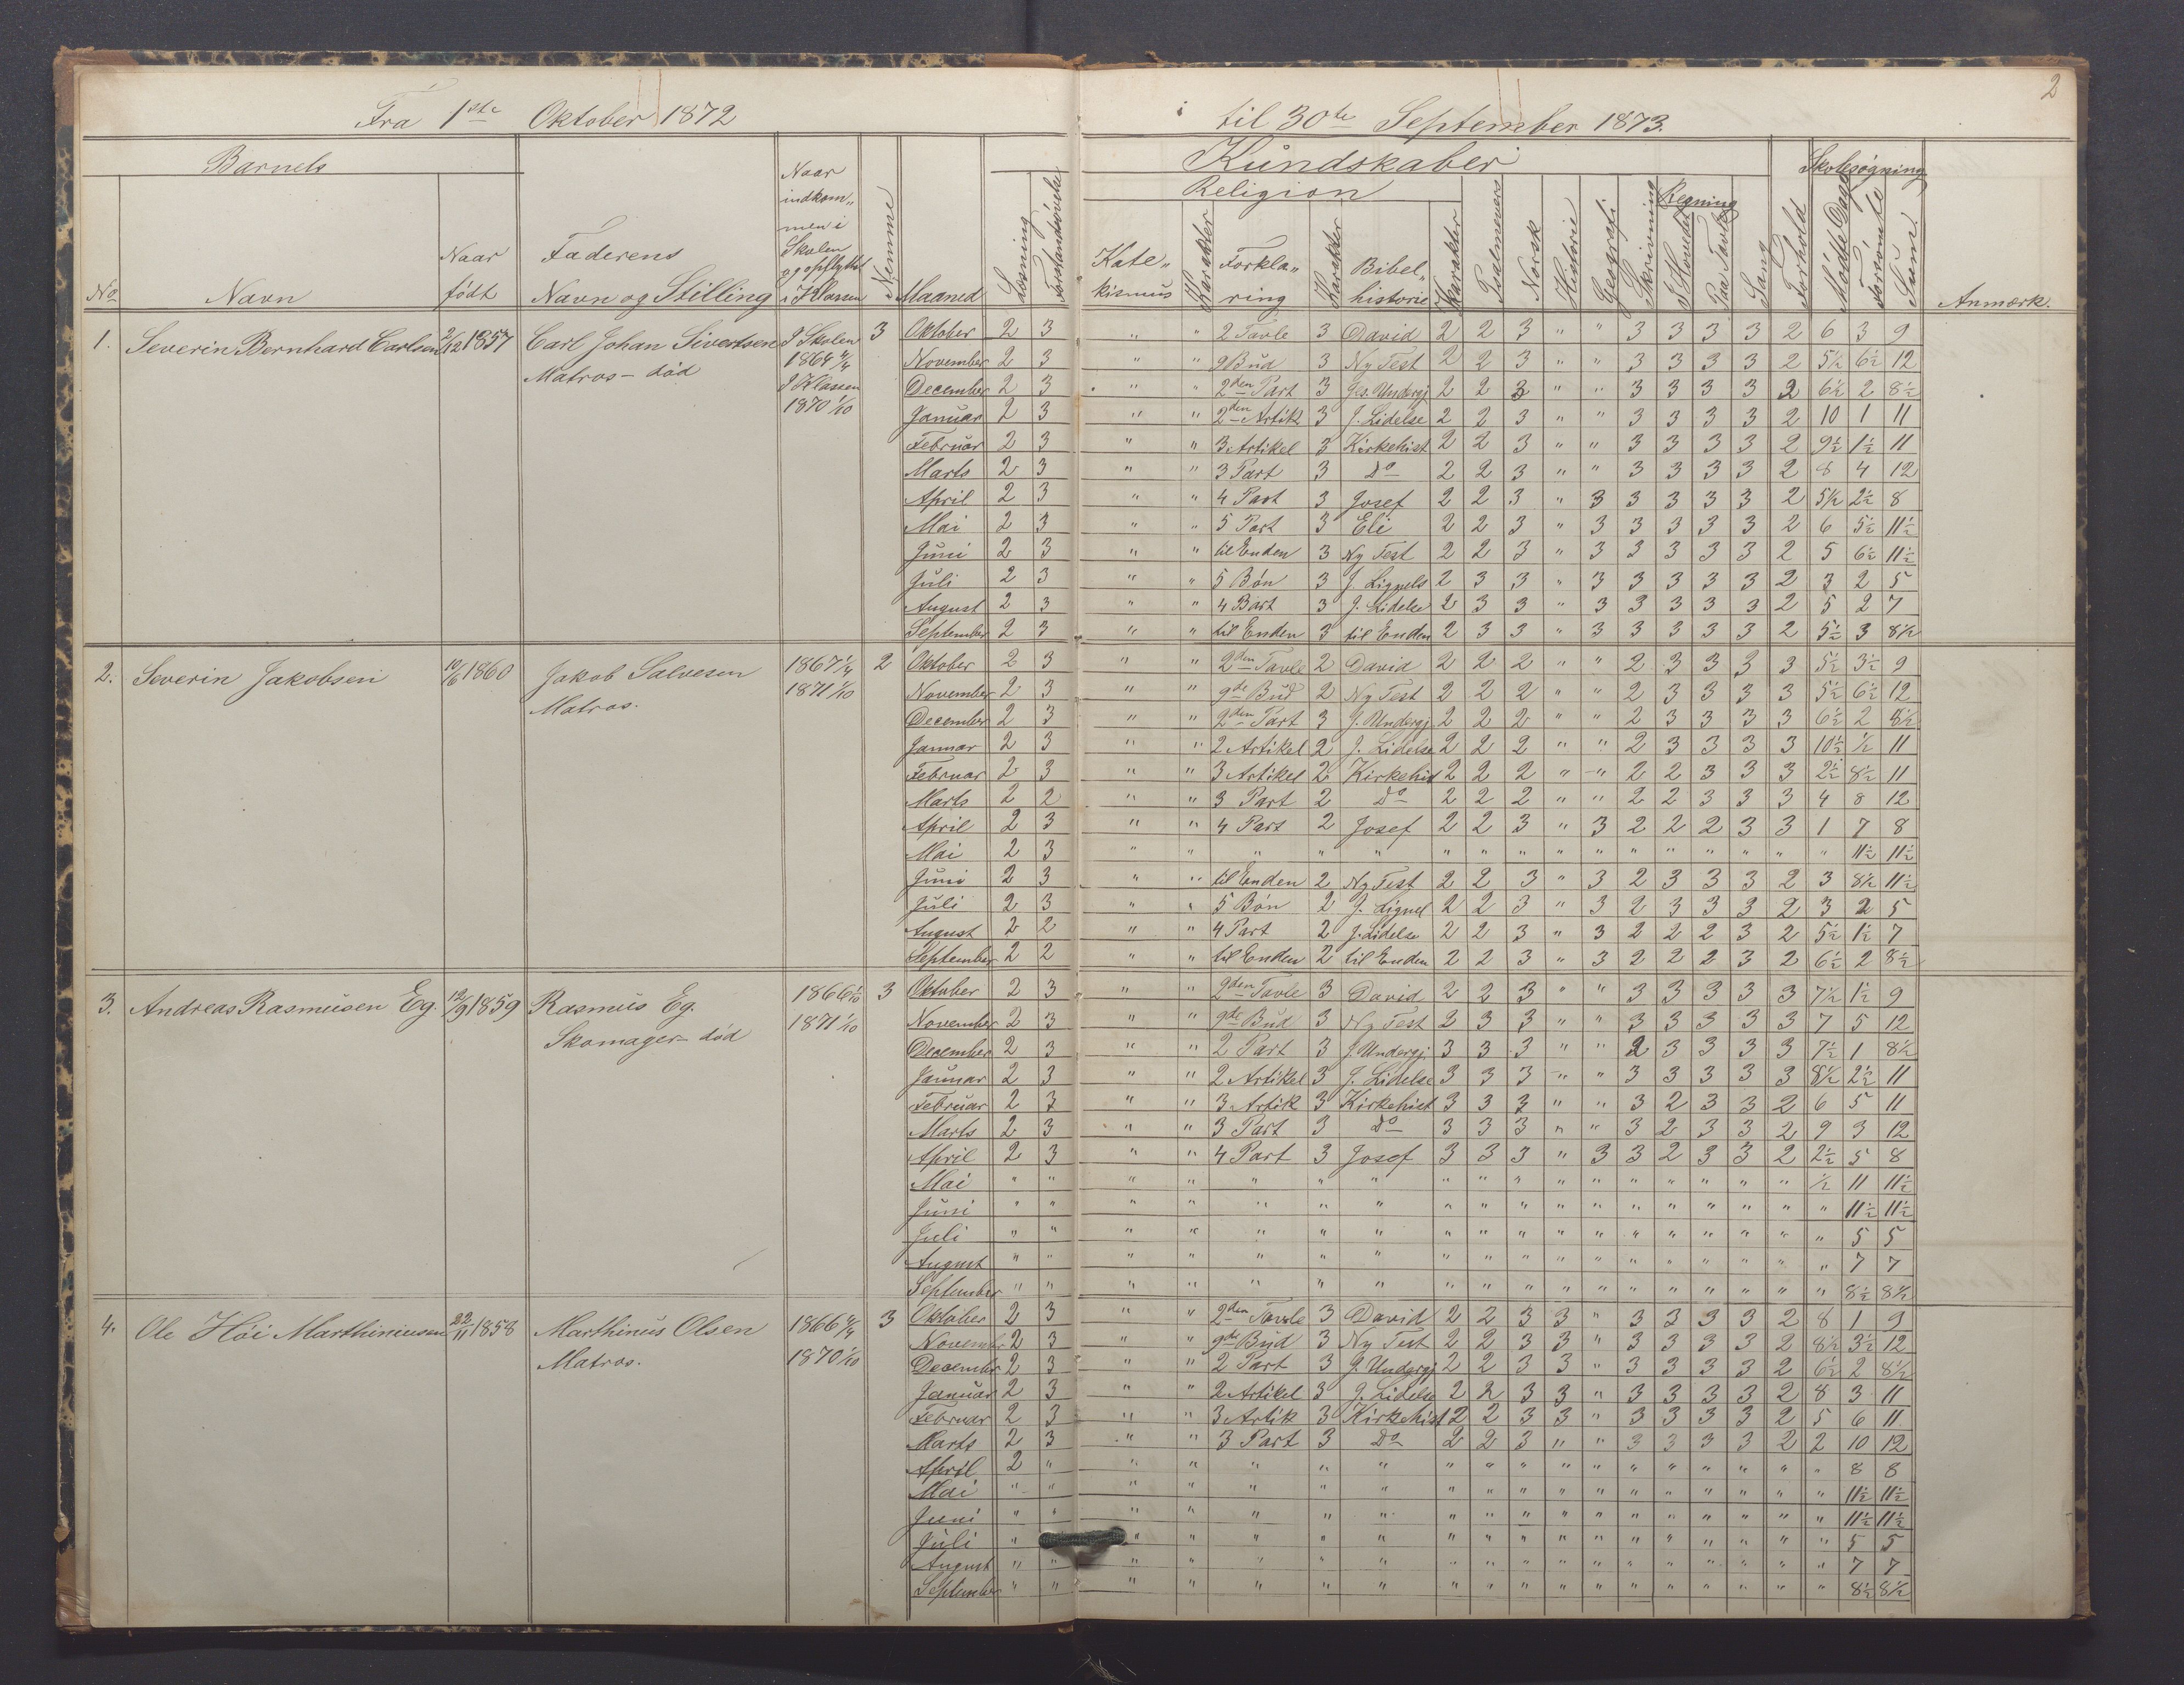 2
Fra 1ste Oktober 1872 til 30te September 1873.
Barnets Kundskaber Skolesøgning
No Navn Naar født Faderens Navn og Stilling Naar indkom„ men i Skolen og opflyttet i Klassen Nemme Maaned Læsning Forstandsøvelse Religion Kate„ kismus Karakter Forkla„ ring Karakter Bibel„ historie Karakter Psalmevers Norsk Historie Geografi Skrivning Regning I Hovedet Paa Tavle Sang Forhold Mødte Dage Forsømte Sum Anmærk.
1. Severin Bernhard Carlsen 2/12 1857 Carl Johan Sivertsen I Skolen 3 Oktober 2 3 " " 2 Tavle 3 David 2 2 3 " " 3 3 3 3 2 6 3 9
Matros - død 1864 4/4 November 2 3 " " 9 Bud 3 Ny Test 2 2 3 " " 3 3 3 3 2 5½ 6½ 12
I Klassen December 2 3 " " 2den Part 3 Jes. Undergj 2 2 3 " " 3 3 3 3 2 6½ 2 8½
1870 1/10 Januar 2 3 " " 2den Artik 3 J. Lidelse 2 2 3 " " 3 3 3 3 2 10 1 11
Februar 2 3 " " 3 Artikel 3 Kirkehist 2 2 3 " " 3 3 3 3 2 9½ 1½ 11
Marts 2 3 " " 3 Part 3 Do 2 2 3 " " 3 3 3 3 2 8 4 12
April 2 3 " " 4 Part 3 Josef 2 2 3 " 3 3 3 3 3 2 5½ 2½ 8
Mai 2 3 " " 5 Part 3 Eli 2 2 3 " 3 3 3 3 3 2 6 5½ 11½
Juni 2 3 " " til Enden 3 Ny Test 2 2 3 " 3 3 3 3 3 2 5 6½ 11½
Juli 2 3 " " 5 Bøn 3 J. Lignels 2 3 3 " 3 3 3 3 3 2 3 2 5
August 2 3 " " 4 Bart 3 J. Lidelse 2 3 3 " 3 3 3 3 3 2 5 2 7
September 2 3 " " til Enden 3 til Enden 2 3 3 " 3 3 3 3 3 2 5½ 3 8½
2. Severin Jakobsen 10/6 1860 Jakob Salvesen 1867 1/4 2 Oktober 2 3 " " 2den Tavle 2 David 2 2 2 " " 2 3 3 3 3 5½ 3½ 9
Matros. 1871 1/10 November 2 3 " " 9de Bud 2 Ny Test 2 2 2 " " 2 3 3 3 3 5½ 6½ 12
December 2 3 " " 2den Part 3 J. Undergj 2 2 2 " " 2 3 3 3 3 6½ 2 8½
Januar 2 3 " " 2 Artikel 2 J. Lidelse 2 2 2 " " 2 3 3 3 3 10½ ½ 11
Februar 2 3 " " 3 Artikel 2 Kirkehist 2 2 2 " " 2 2 3 3 3 2½ 8½ 11
Marts 2 2 " " 3 Part 2 Do 2 2 2 " " 2 2 3 3 3 4 8 12
April 2 3 " " 4 Part 2 Josef 2 2 3 " 3 2 2 2 3 3 1 7 8
Mai 2 3 " " " " " " " " " " " " " " " " 11½ 11½
Juni 2 3 " " til Enden 2 Ny Test 2 2 3 " 3 2 3 3 3 2 3 8½ 11½
Juli 2 3 " " 5 Bøn 2 J. Lignel 2 2 3 " 3 2 3 3 3 2 3 2 5
August 2 2 " " 4 Part 2 J. Lidelse 2 2 3 " 3 2 2 2 3 2 5½ 1½ 7
September 2 2 " " til Enden 2 til Enden 2 2 3 " 3 2 2 2 3 2 6½ 2 8½
3. Andreas Rasmusen Eg. 12/9 1859 Rasmus Eg. 1866 1/10 3 Oktober 2 3 " " 2den Tavle 3 David 2 2 3 " " 3 3 3 3 3 7½ 1½ 9
Skomager - død 1871 1/10 November 2 3 " " 9de Bud 3 Ny Test 2 3 3 " " 3 3 3 3 3 7 5 12
December 2 3 " " 2 Part 3 J. Undergj. 3 3 3 " " 2 3 3 3 3 7½ 1 8½
Januar 2 3 " " 2 Artikel 3 J. Lidelse 3 3 3 " " 3 3 3 3 3 8½ 2½ 11
Februar 2 3 " " 3 Artik 3 Kirkehist 3 3 3 " " 3 2 3 3 2 6 5 11
Marts 2 3 " " 3 Part 3 Do 3 3 3 " " 3 2 3 3 2 9 3 12
April 2 3 " " 4 Part 3 Josef 3 3 3 " 3 3 2 3 3 2 2½ 5 8
Mai " " " " " " " " " " " " " " " " " " ½ 11 11½
Juni " " " " " " " " " " " " " " " " " " " 11½ 11½
Juli " " " " " " " " " " " " " " " " " " " 5 5
August " " " " " " " " " " " " " " " " " " " 7 7
September " " " " " " " " " " " " " " " " " " " 8½ 8½
4. Ole Höi Marthiniusen 22/11 1858 Marthinus Olsen 1866 4/4 3 Oktober 2 3 " " 2den Tavle 3 David 2 2 3 3 " 3 3 3 3 2 8 1 9
Matros. 1870 1/10 November 2 3 " " 9de Bud 3 Ny Test 2 2 3 3 " 3 3 3 3 2 8½ 3½ 12
December 2 3 " " 2 Part 3 J. Undergj 2 2 3 3 " 3 3 3 3 2 6½ 2 8½
Januar 2 3 " " 2 Artikel 3 J. Lidelse 2 2 3 3 " 3 3 3 3 2 8 3 11
Februar 2 3 " " 3 Artik 3 Kirkehist 2 2 3 3 " 3 3 3 3 2 5 6 11
Marts 2 3 " " 3 Part 3 Do 2 2 3 " " 3 3 3 3 2 2 10 12
April 2 " " " " " " " " " " " " " " " " " " 8 8
Mai " " " " " " " " " " " " " " " " " " " 11½ 11½
Juni " " " " " " " " " " " " " " " " " " " 11½ 11½
Juli " " " " " " " " " " " " " " " " " " 5 5
August " " " " " " " " " " " " " " " " " " " 7 7
September " " " " " " " " " " " " " " " " " " " 8½ 8½